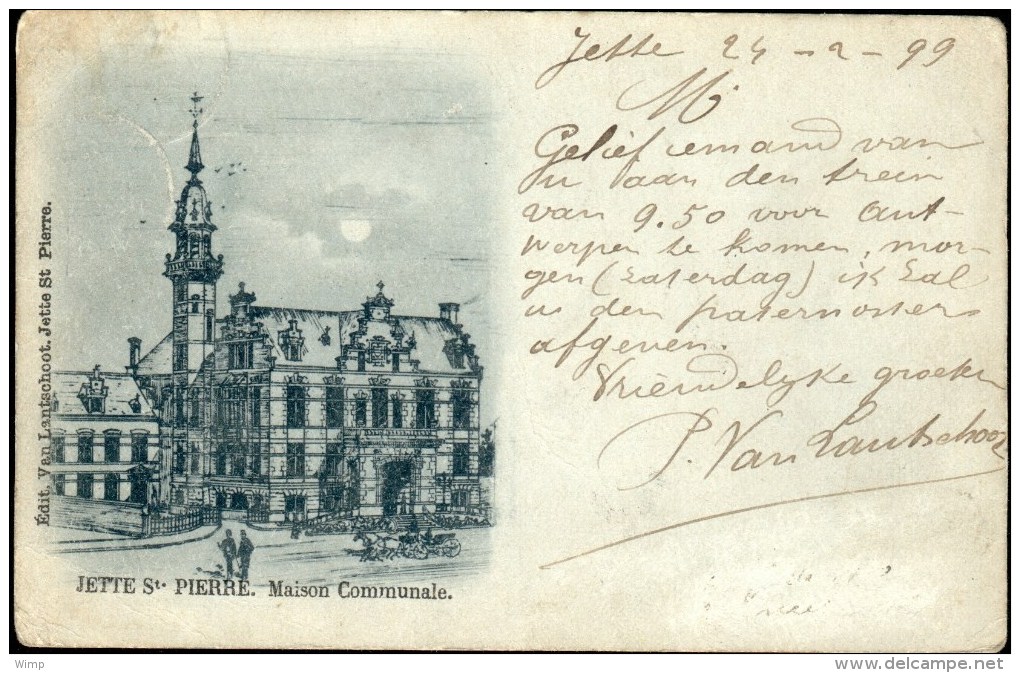 Jette 24 - 2 - 99
Mr
Gelief iemand van
u aan den trein
van 9.50 voor Ant-
werpen te komen, mor-
gen (Zaterdag) ik zal
u den paternoster
afgeven.
Vriendelyke groeten
P. Van Lantschoot
Édit. Van Lantschoot. Jette St Pierre.
JETTE St. PIERRE. Maison Communale.
Wimp
all rights reserved @ delcampe.net